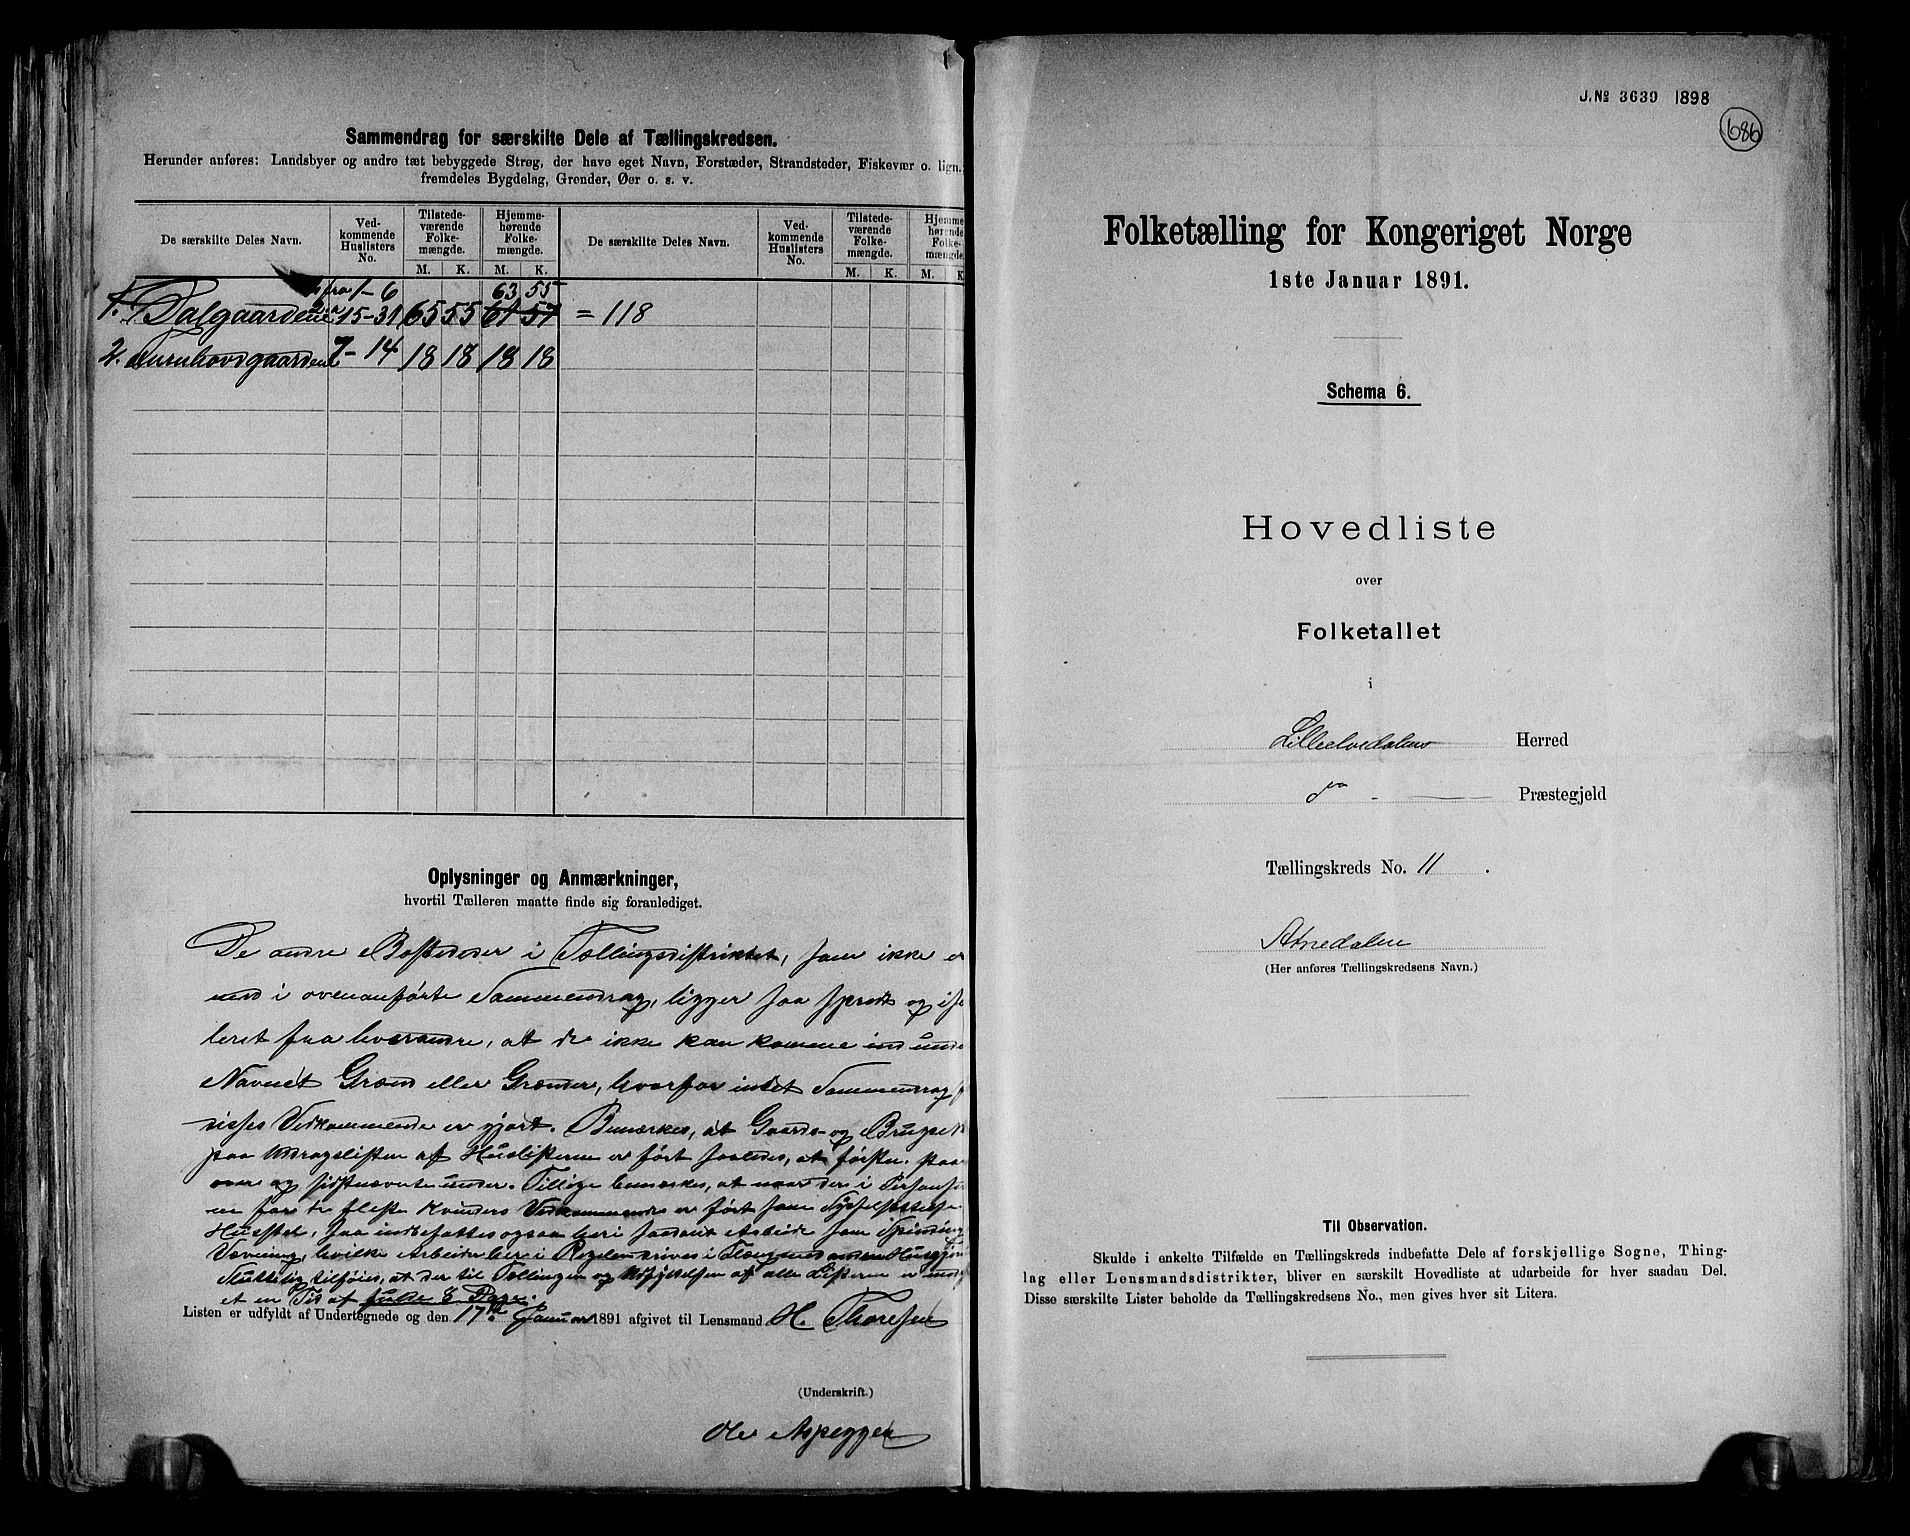 Sammendrag for særskilte Dele af Tællingskredsen.
Herunder anføres: Landsbyer og andre tæt bebyggede Strøg, der have eget Navn, Forstæder, Strandsteder, Fiskevær o. lign.,
fremdeles Bygdelag, Grender, Øer o. s. v.
De særskilte Deles Navn. Ved-kommende Huslisters No. Tilstede-værende Folke-mængde. Hjemme-hørende Folke-mængde. De særskilte Deles Navn. Ved-kommende Huslisters No. Tilstede-værende Folke-mængde. Hjemme hørende Folke-mængde.
M. K. M. K. M. K. M. K
fra 1-6 63 55
1. Dalgaardene 15-31 65 55 61 57 = 118
2. Turuhovdgaardene 7-14 18 18 18 18
Oplysninger og Anmærkninger,
hvortil Tælleren maatte finde sig foranlediget.
De andre Bosteder i Tællingsdistriktet, som ikke er
med i ovenanførte Sammendrag, ligger saa spredt og iso
leret fra hverandre, at de ikke kan komme ind unde
Navnet Grænd eller Grænder, hvorfor intet Sammendrag
disses Vedkommende er gjort. Bemærkes, at Gaards- og Brugs
paa Udragslisten af Huslisterne er ført saaledes, at første staar
over og sidstnævnte under. Tillige bemærkes, at naar der i
ne for de fleste Kvinders Vedkommende er ført som
Husstel, saa indbefattes ogsaa heri saadant Arbeide som Spinding
Vævning, hvilke Arbeider her i Regelen drives i
Sluttelig tilføies, at der til Tællingen og Udfyldelsen af alle Listerne er med
et en Tid af fulde 8 Dage.
Listen er udfyldt af Undertegnede og den 17de Januar 1891 afgivet til Lensmand H. Thoresen
(Underskrift.)
Ole Aspeggen
J.No 3630 1898
686
Folketælling for Kongeriget Norge
1ste Januar 1891.
Schema 6.
Hovedliste
over
Folketallet
i
Lilleelvedalens Herred
do - Præstegjeld
Tællingskreds No. 11.
Atnedalen
(Her anføres Tællingskredsens Navn.)
Til Observation.
Skulde i enkelte Tilfælde en Tællingskreds indbefatte Dele af forskjellige Sogne, Thing-
lag eller Lensmandsdistrikter, bliver en særskilt Hovedliste at udarbeide for hver saadan Del.
Disse særskilte Lister beholde da Tællingskredsens No., men gives hver sit Litera.